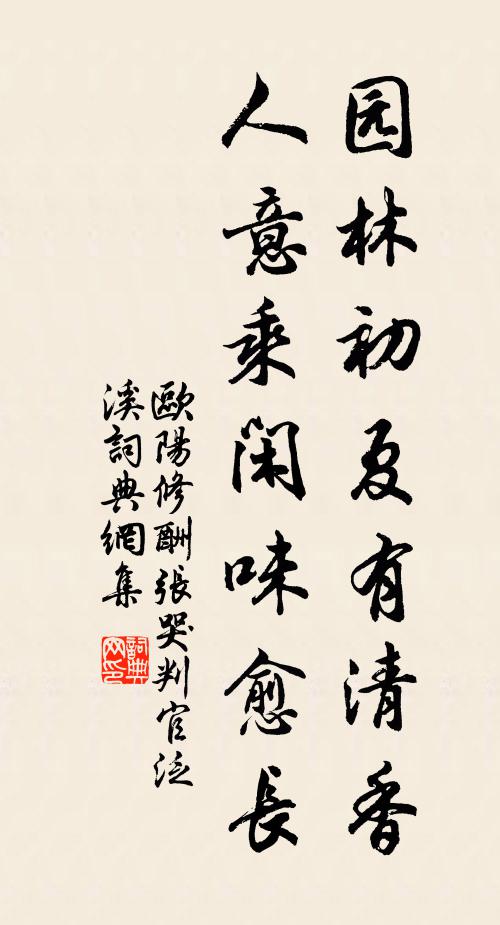 园林初夏有清香
人意乘闲味愈長
歐陽修酬張器判官泛
溪詞典網集
詞典网印